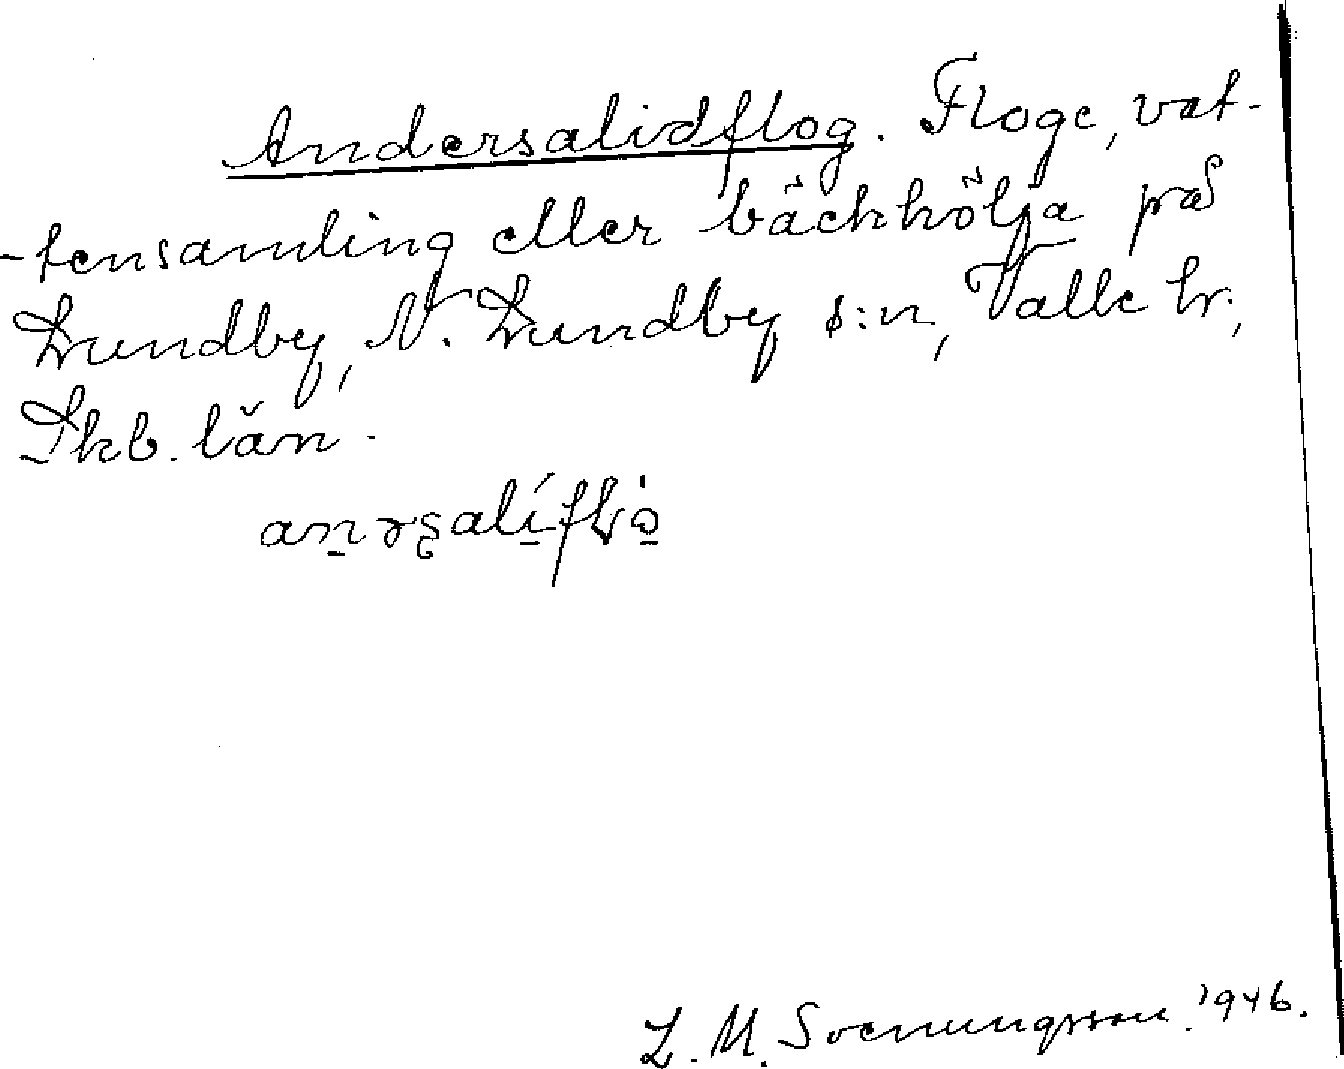 Andersalidflog. Floge, vat-
-tensamling eller bäckhölja på
Lundby, N. Lundby s:n, Valle hr.,
Skb. län.
L. M. Svenungsson. 1946.